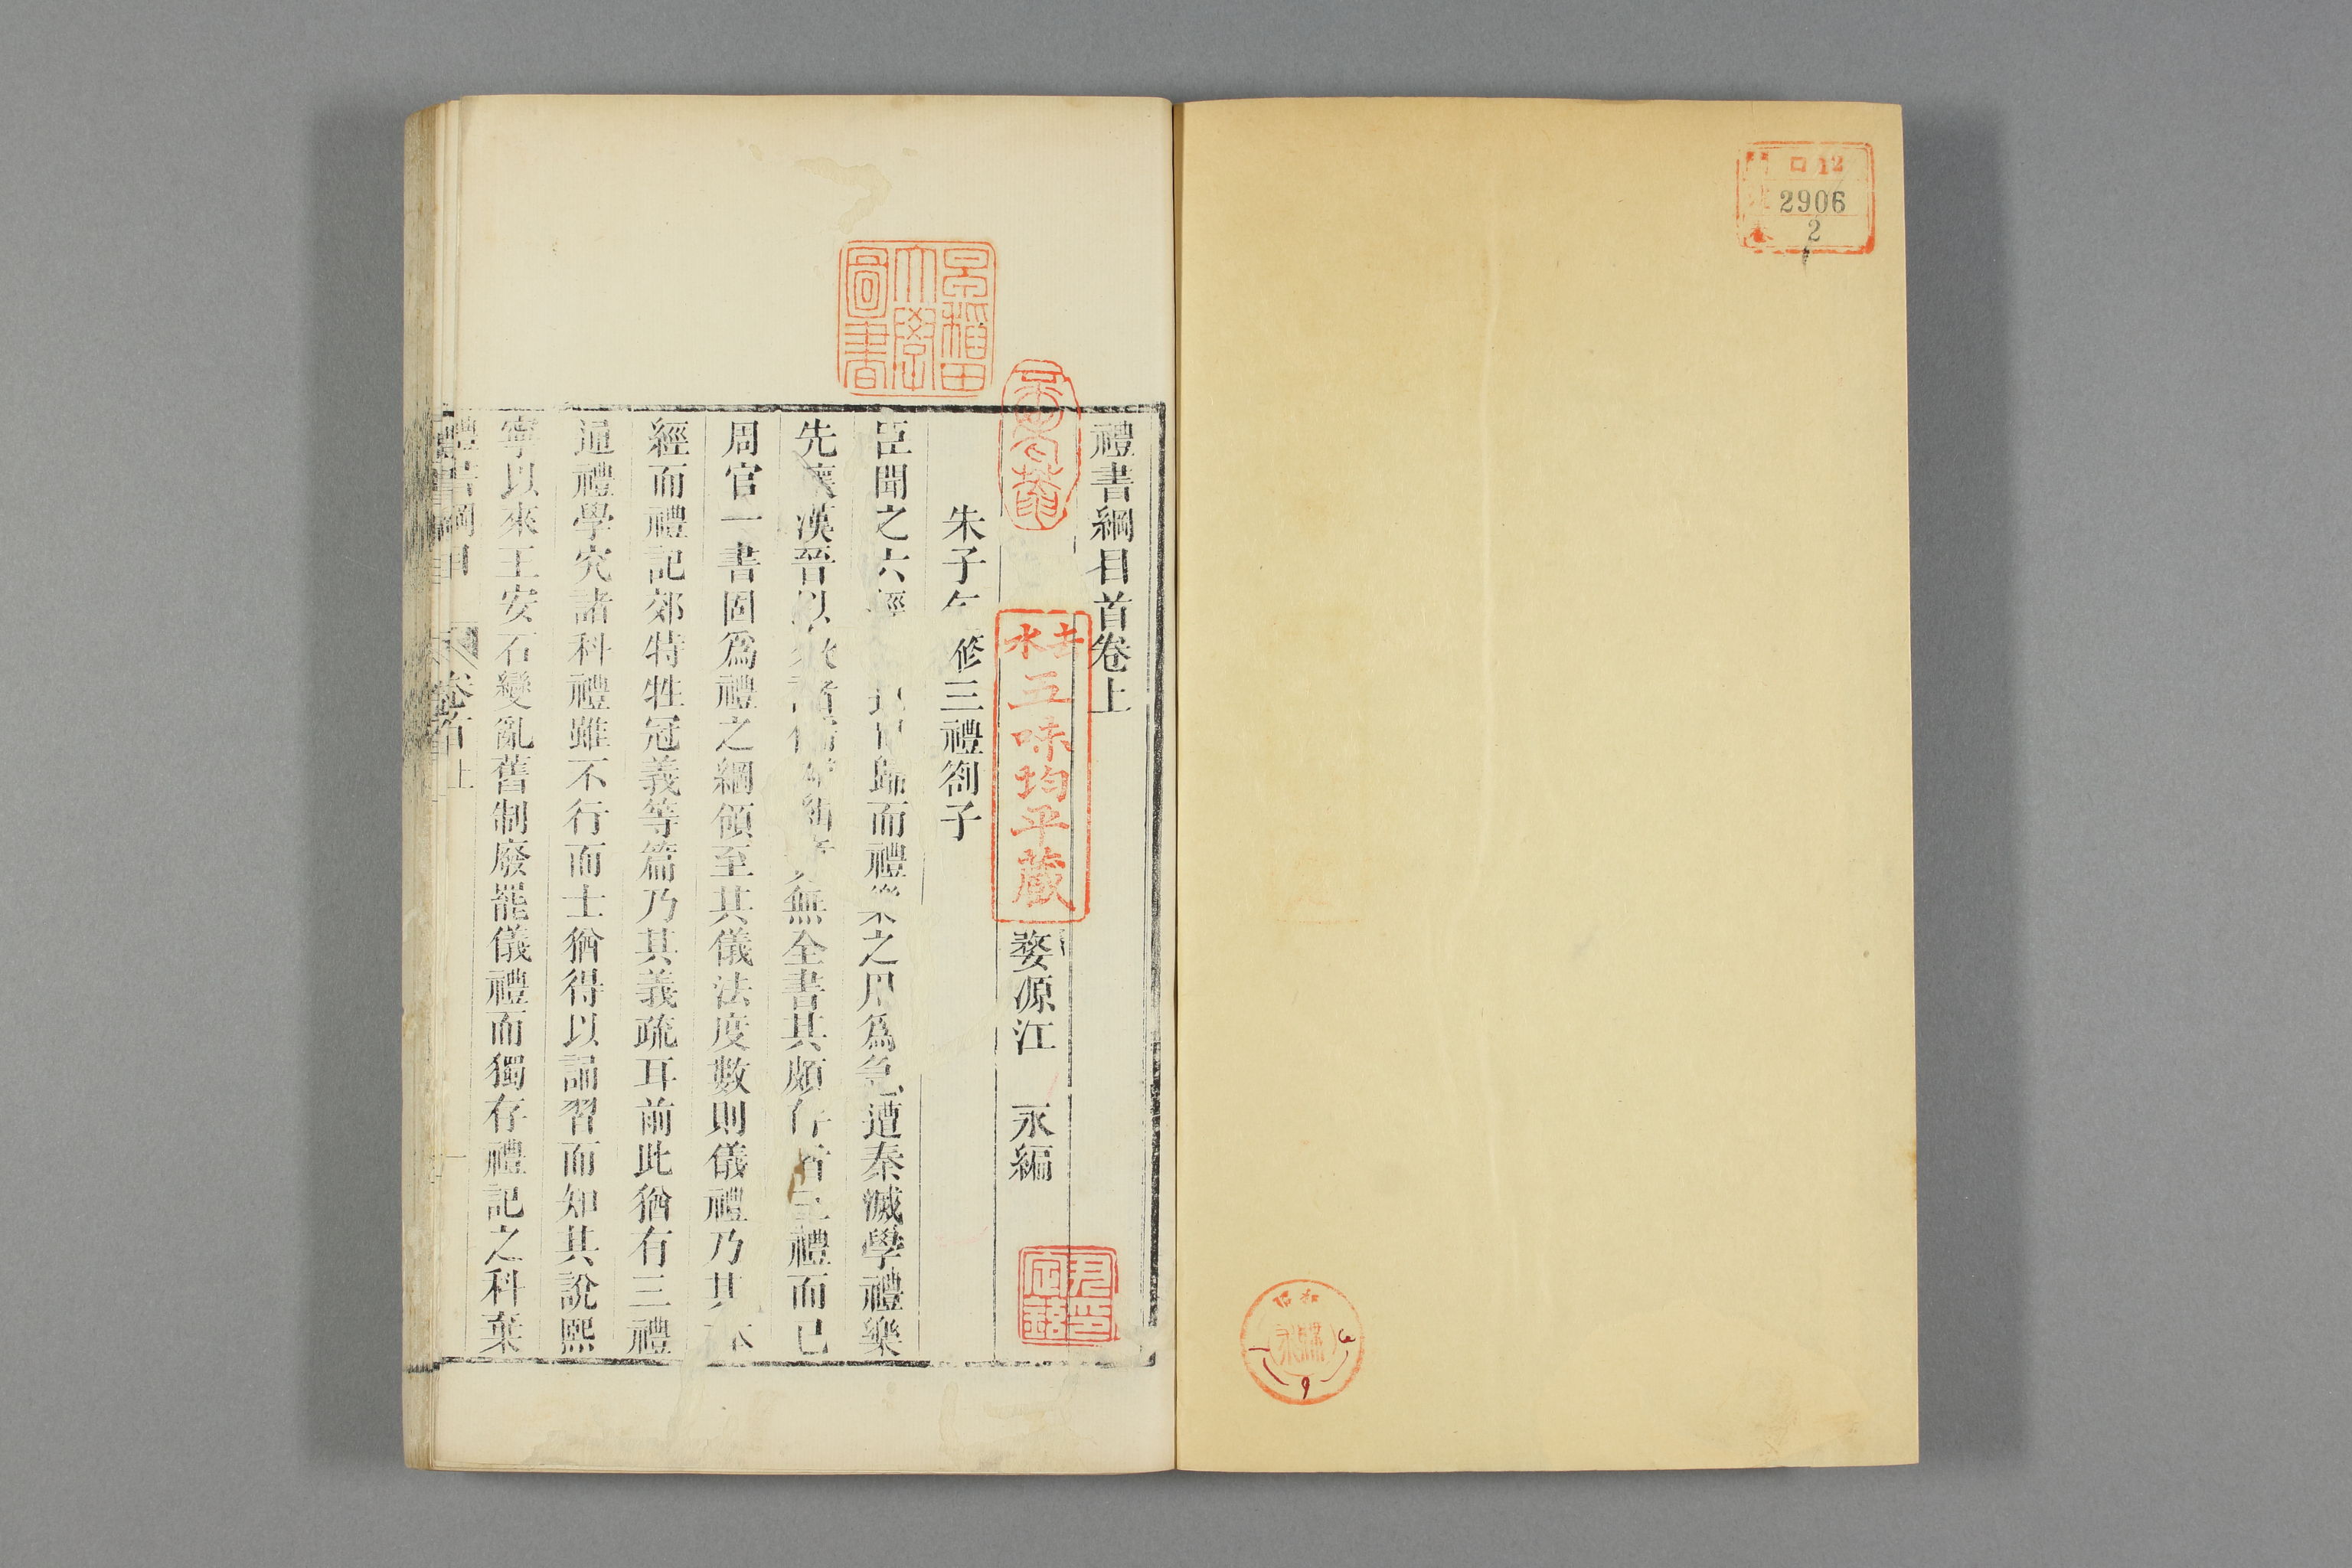 ロ12
2906
2
禮書綱目首卷上
婺源江 永編
朱子 修三禮劄子
臣聞之六經 歸而禮樂之用爲急遭秦滅學禮樂
先壞漢晉以 無全書其頗存者三禮而已
周官一書固爲禮之綱領至其儀法度數則儀禮乃其本
經而禮記郊特牲冠義等篇乃其義疏耳前此猶有三禮
通禮學究諸科禮雖不行而士猶得以誦習而知其說熙
寧以來王安石變亂舊制廢罷儀禮而獨存禮記之科棄
禮書綱目 卷首上 一
早稻田大學圖書
水五味均平藏